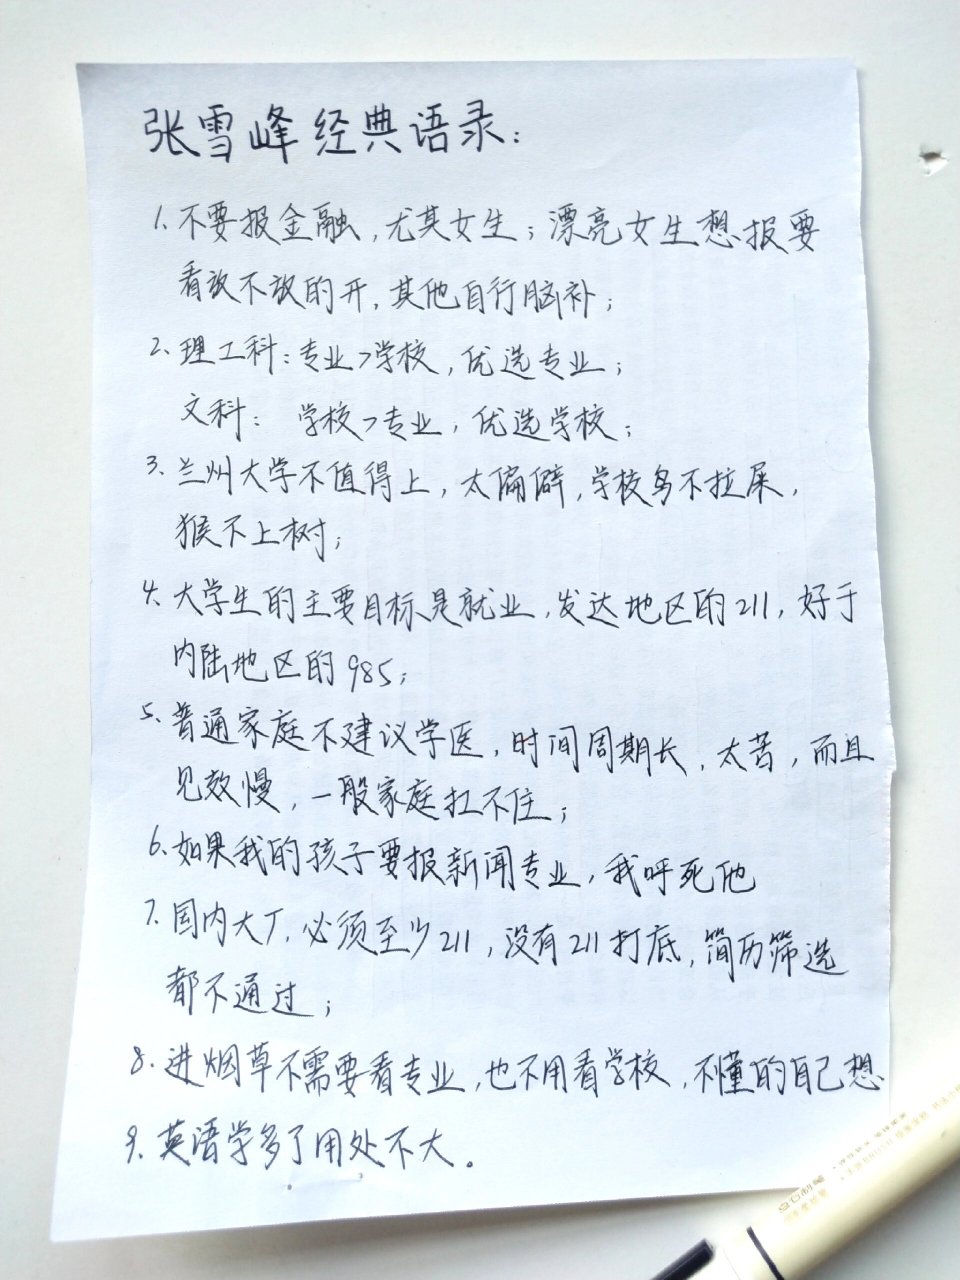 张雪峰经典语录：
1、不要报金融，尤其女生；漂亮女生想报要
看放不放的开，其他自行脑补；
2、理工科：专业>学校，优选专业；
文科： 学校>专业，优选学校；
3、兰州大学不值得上，太偏僻，学校鸟不拉屎，
猴不上树；
4、大学生的主要目标是就业，发达地区的211，好于
内陆地区的985；
5、普通家庭不建议学医，时间周期长，太苦，而且
见效慢，一般家庭扛不住；
6、如果我的孩子要报新闻专业，我呼死他
7、国内大厂，必须至少211，没有211打底，简历筛选
都不通过；
8、进烟草不需要看专业，也不用看学校，不懂的自己想
9、英语学多了用处不大。